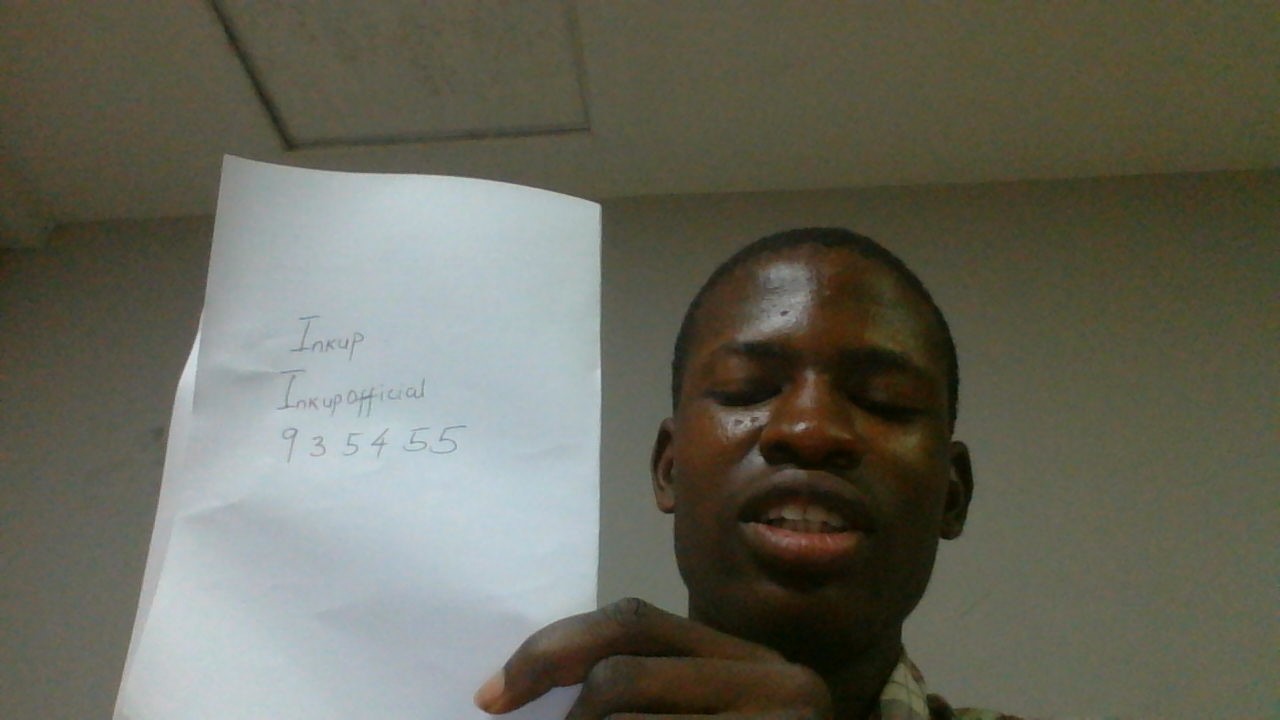 Inkup
Inkupofficial
935455